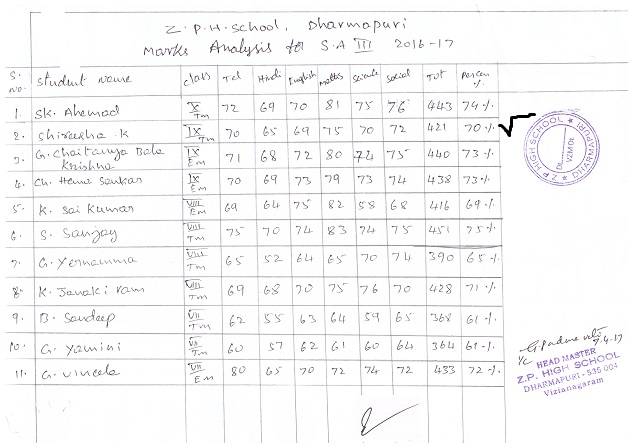 Z.P.H. School, Dharmapuri
Marks Analysis for S.A III 2016-17
S. no. Student name class Tel Hindi English maths science social TOT Percen %
1. SK. Ahemad X Tm 72 69 70 81 75 76 443 74%
2. Shirasha.K IX Tm 70 65 69 75 70 72 421 70%
3. G. Chaitanya Bala Krishna IX Em 71 68 72 80 74 75 440 73%
4. Ch. Hema Sankar IX Em 70 69 73 79 73 74 438 73%
5. K. Sai Kumar VIII Em 69 64 75 82 58 68 416 69%
6. S. Sanjay VIII Tm 75 70 74 83 74 75 451 75%
7. G. Yernamma VIII Tm 65 52 64 65 70 74 390 65%
8. K. Janaki ram VIII Tm 69 68 70 75 76 70 428 71%
9. B. Sandeep VII Tm 62 55 63 64 59 65 368 61%
10. G. Yamini VII Tm 60 57 62 61 60 64 364 61%
11. G. Vineela VII Em 80 65 70 72 74 72 433 72%
Z.P. HIGH SCHOOL ★ DHARMAPURI ★
DI. VZM DI
7.4.17
HEAD MASTER
Z.P. HIGH SCHOOL
DHARMAPURI - 535 004
Vizianagaram